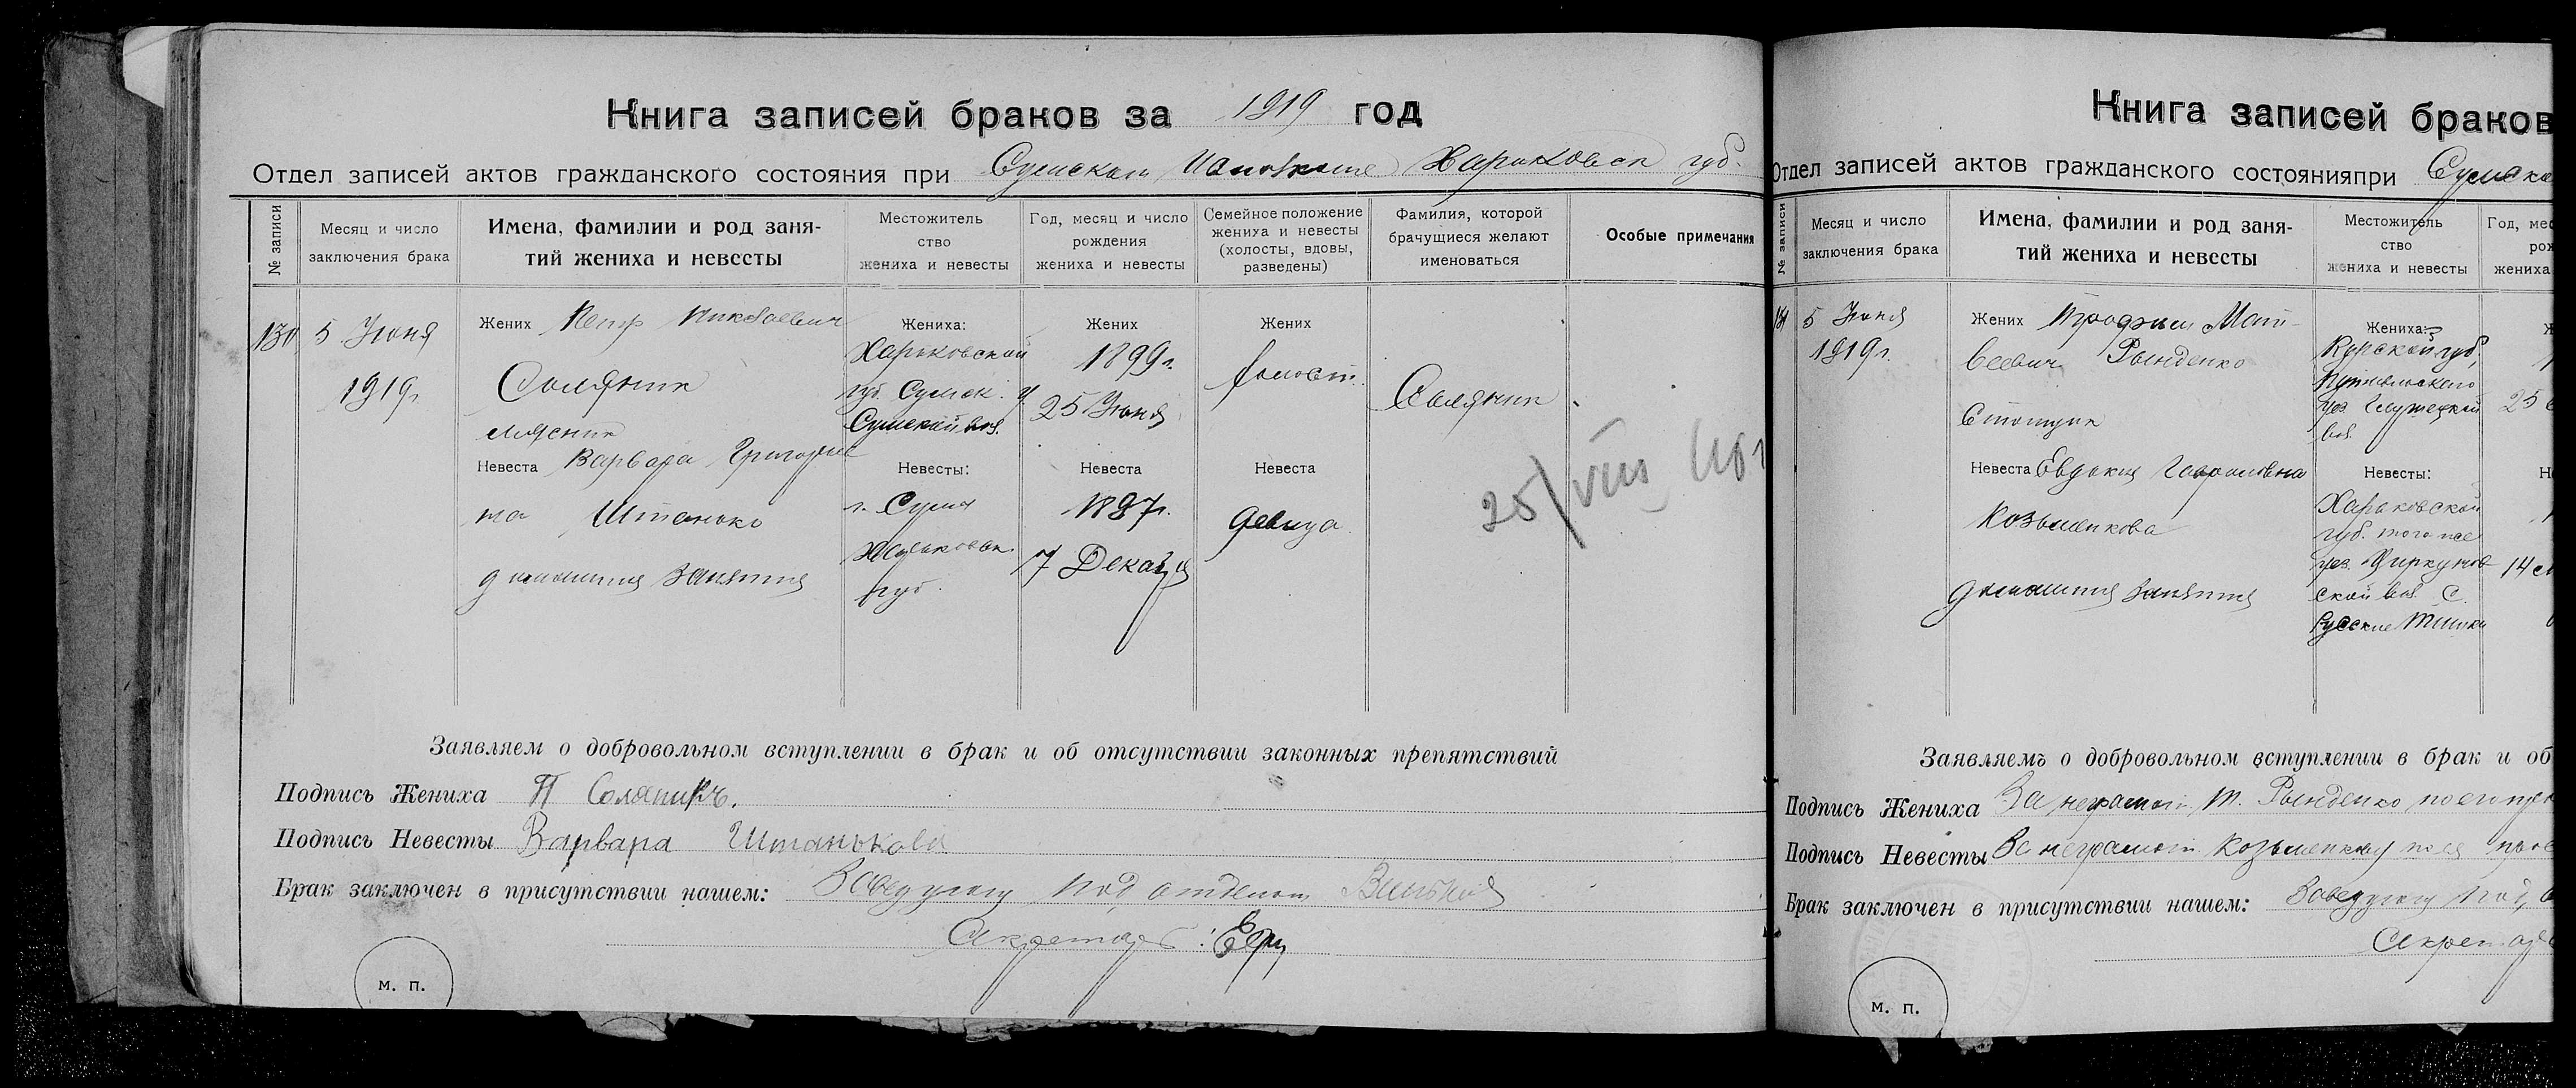 Книга записей браков за 1919 год
Отдел записей актов гражданского состояния при Сумском Исполкоме Харьковск губ.
№ записи
Месяц и число
заключения брака
Имена, фамилии и род заня-
тий жениха и невесты
Местожитель
ство
жениха и невесты
Год, месяц и число
рождения
жениха и невесты
Семейное положение
жениха и невесты
(холосты, вдовы,
разведены)
Фамилия, которой
брачущиеся желают
именоваться
Особые примечания
130
5 Июня
1919г.
Жених Петр Николаевич
Соляник
мясник
Невеста Варвара Григорьев
на Штанько
домашния занятия
Жениха:
Харьковской
губ. Сумск. у
Сумской вол.
Невесты:
г. Сумы
Харьковск.
губ.
Жених
1899г.
25 Июня
Невеста
1897г.
7 Декабря
Жених
холост.
Невеста
девица
Соляник
25/VIII
Заявляем о добровольном вступлении в брак и об отсутствии законных препятствий
Подпись Жениха П Соляникъ.
Подпись Невесты Варвара Штанькова
Брак заключен в присутствии нашем: Заведующ под отделом
Секретарь:
м. п.
Книга записей браков
Отдел записей актов гражданского состоянияпри Сумско
№ записи
Месяц и число
заключения брака
Имена, фамилии и род заня-
тий жениха и невесты
Местожитель
ство
жениха и невесты
Год, мес
рож
жениха
5 Июня
1919г.
Жених Трофим Мат-
веевич Рынденко
Невеста Евдокия
Козьменкова
домашния занятия
Жениха:
Курской губ.
Путивльского
уез.
вол.
Невесты:
Харьковской
губ. того же
уез. Циркунов
ской вол. С.
Русские Тишки
25
14
Заявляемъ о добровольном вступлении в брак и об
Подпись Жениха За неграмотн. Т. Рынденко по его
Подпись Невесты За неграмотн. Козьменкову по ея
Брак заключен в присутствии нашем: Заведующ под,
Секретарь
м. п.